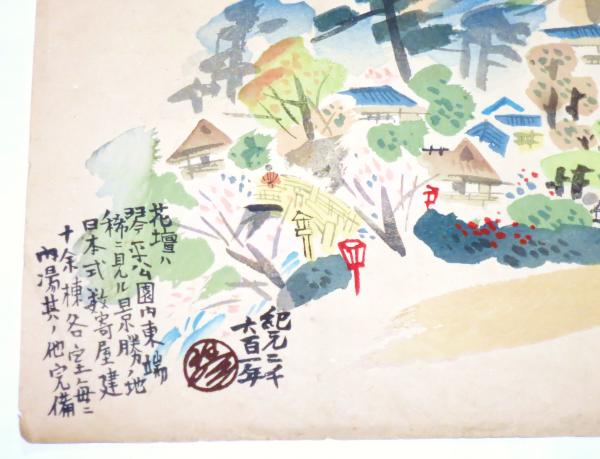 花壇ハ
琴平公園内東端
稀ニ見ル景勝ノ地
日本式数寄屋建
十余棟各室毎ニ
内湯其ノ他完備
紀元二千
六百一年